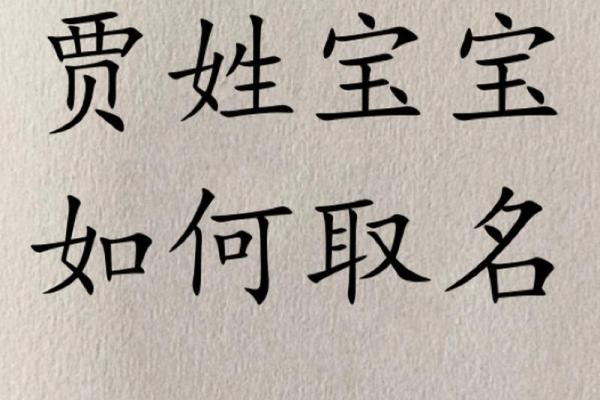 贾姓宝宝
如何取名